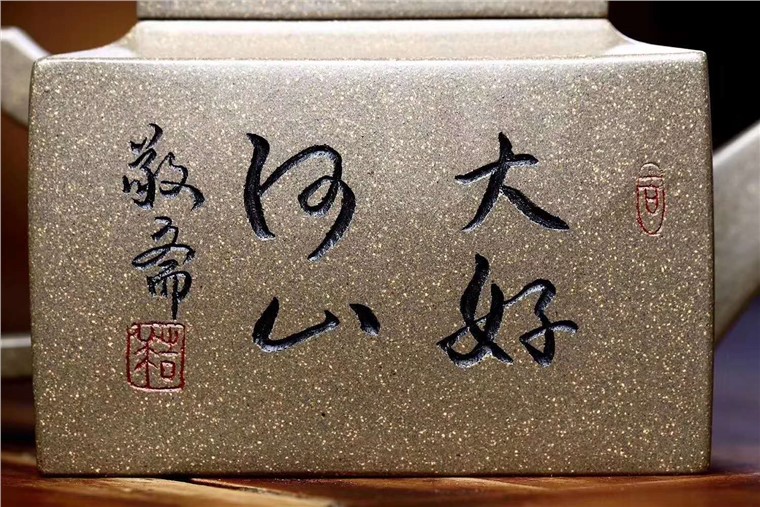 大好
河山
敬斋